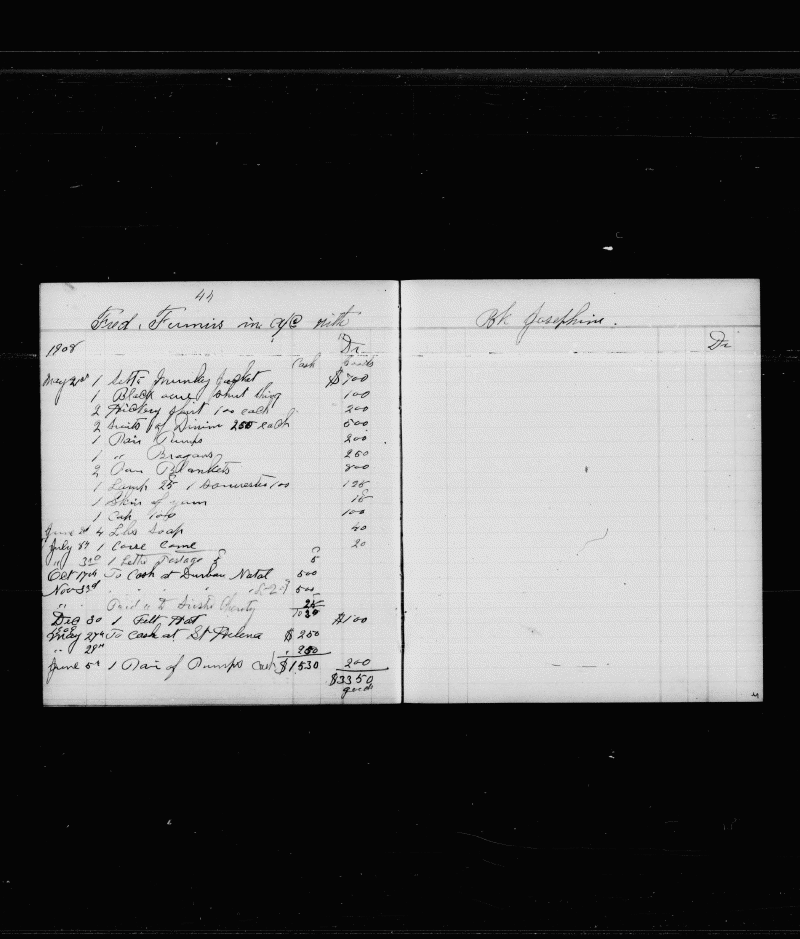 44
Fred. Furmis in a/c with Bk Josephine.
1908 Dr Dr
Cash Goods
May 21st 1 Munkey Jacket $700
1 Black over shirt 100
2 Hickory Shirt 100 each 200
2 Suits of Dinim 250 each 500
1 Pair Pumps 200
1 " Brogans 250
2 Pair Blankets 800
1 Lamp 25 1 Souwester 100 125
1 Skin of yarn 15
1 Cap 100 100
June 4 Lbs Soap 40
July 8th 1 Corse Come 20
" 1 Letter Postage 5 5
Oct 17th To Cash at Durban Natal 500
Nov 23rd " " " " 500
" Paid to 25
1030
Dec 30 1 Felt Hat $100
1909
May 27th To Cash at St Helena $250
" 28th " 250
June 5th 1 Pair of Pumps Cash $1530 200
$3350
goods